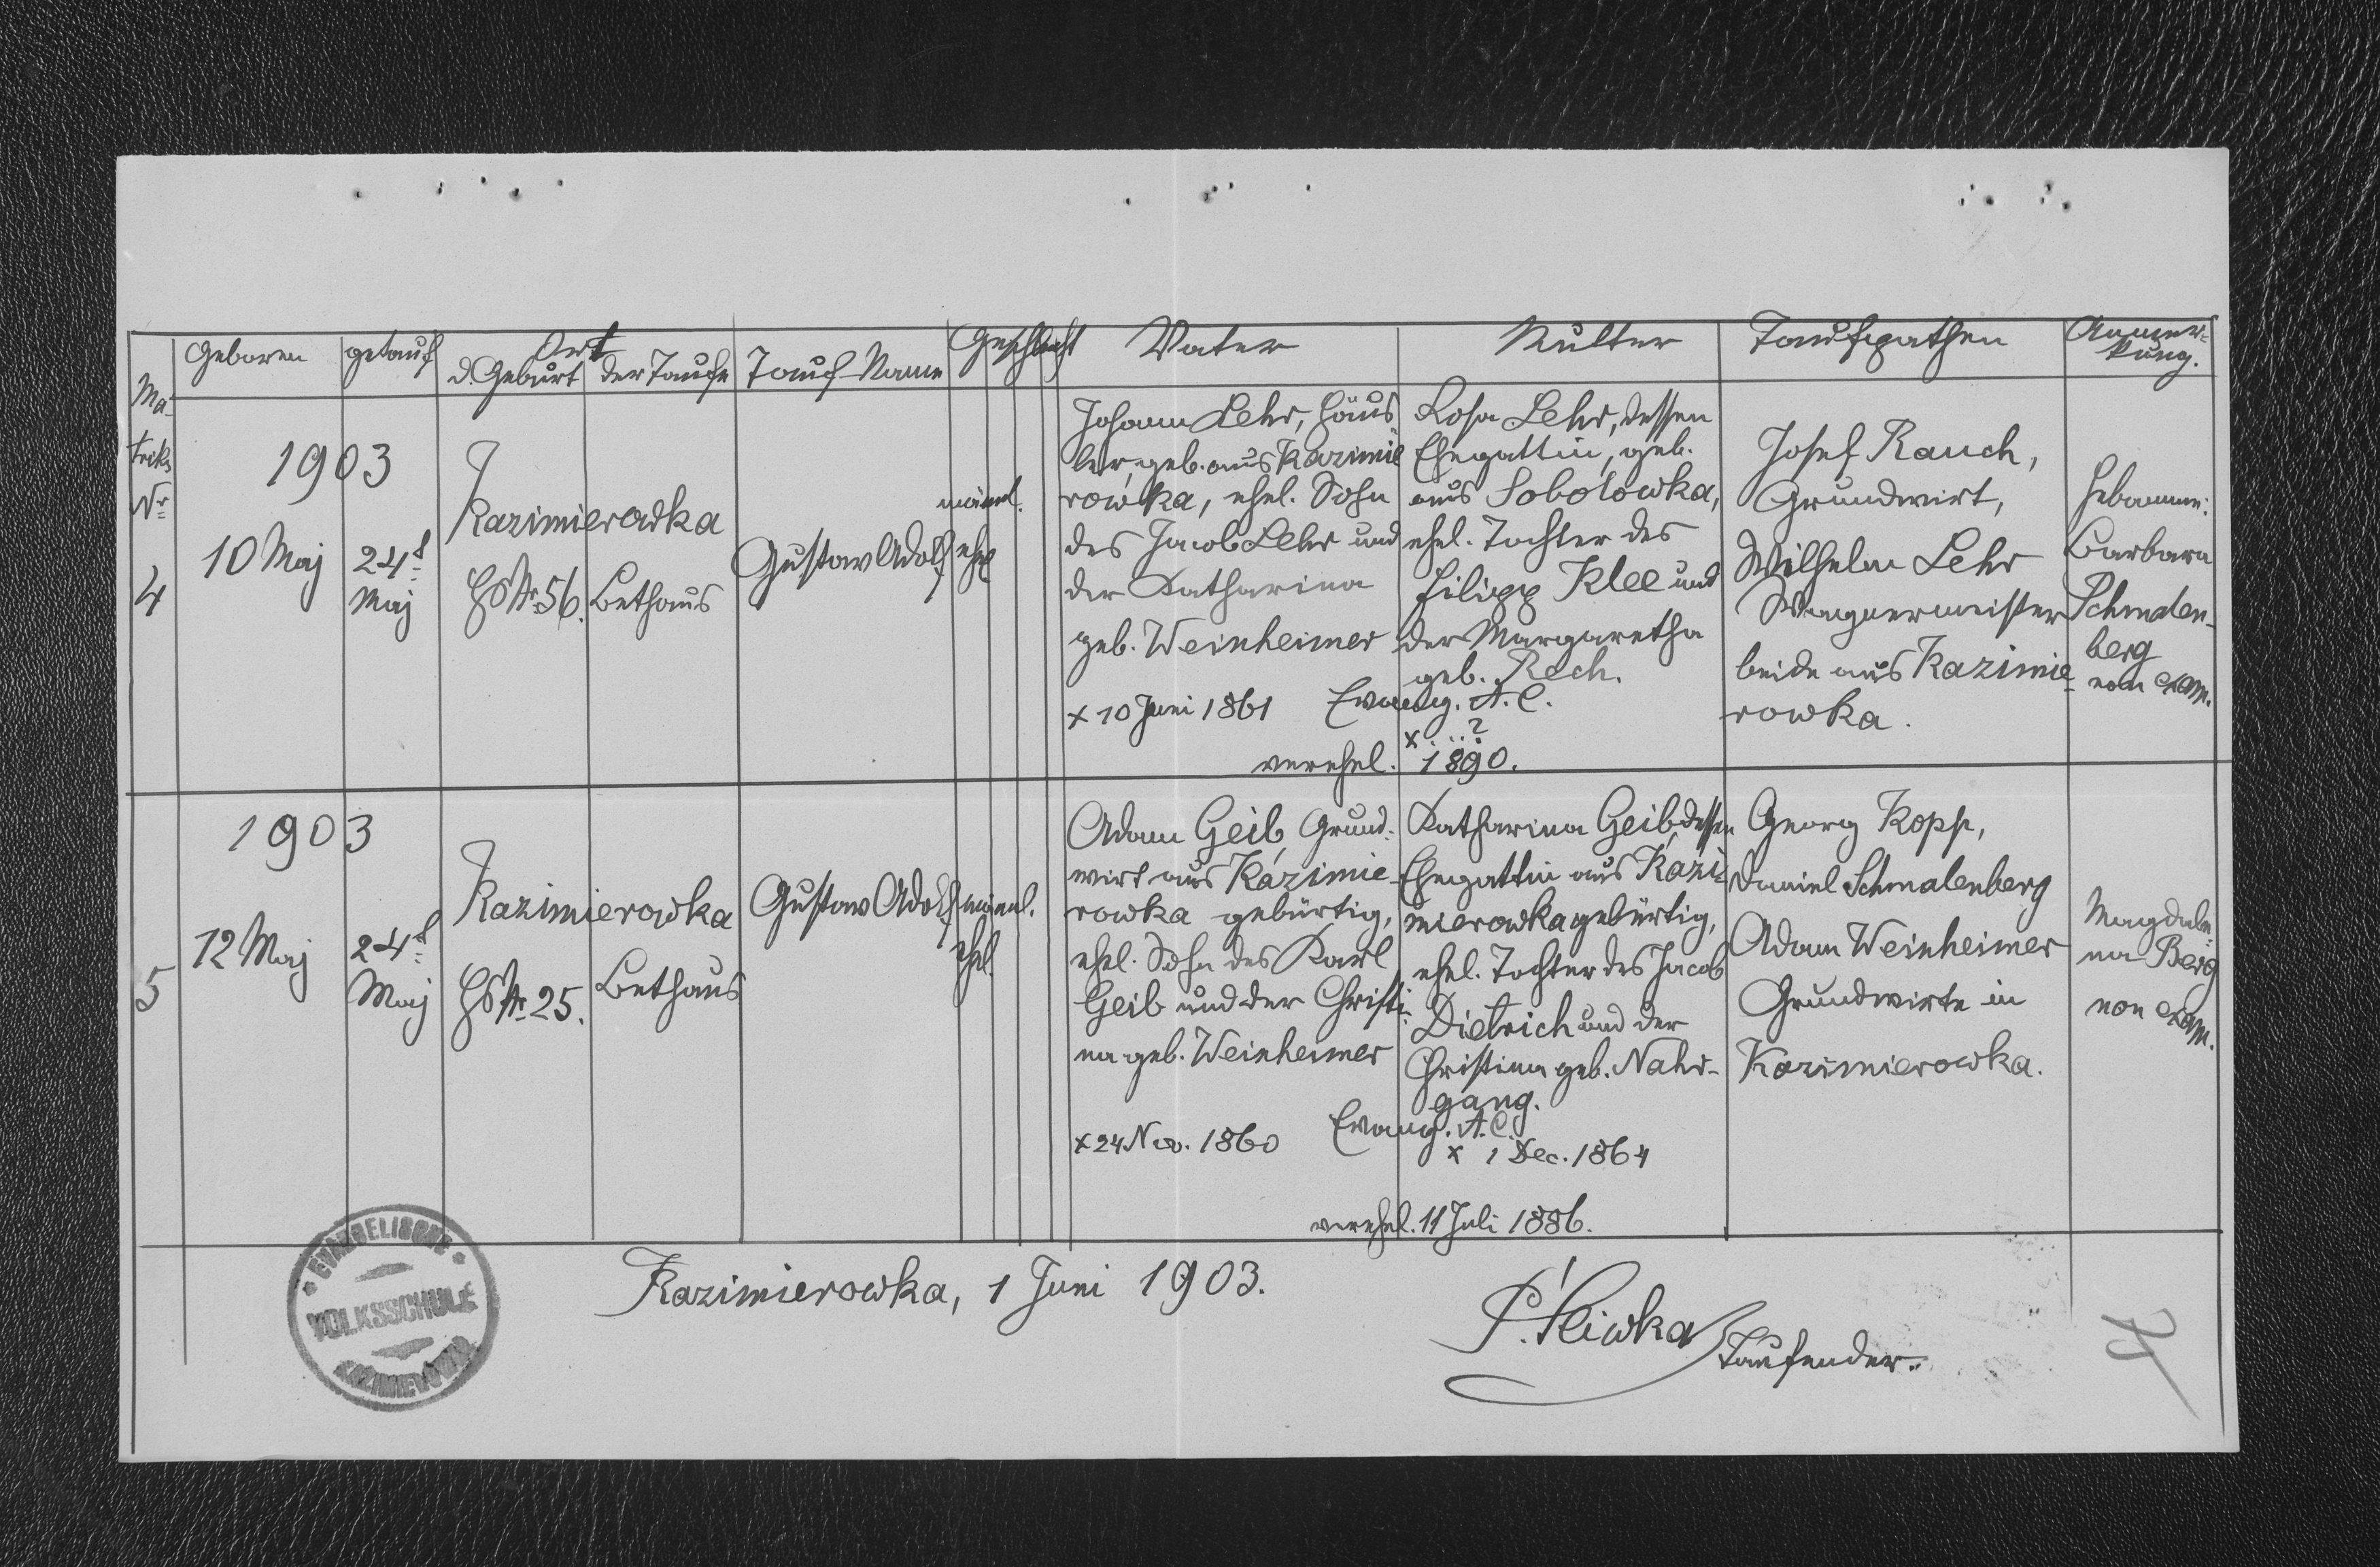 Ma-
triks
Nr
Geboren
getauft
Ort
d. Geburt
der Taufe
Tauf-Name
Geschlecht
Vater
Mutter
Taufpathen
Anmer-
kung.
4
1903
10 Maj
24t
Maj
Kazimierowka
HsNr. 56.
Bethaus
Gustav Adolf
männl.
ehel
Johann Lehr, Häus-
ler, geb. aus Kazimie
rowka, ehel. Sohn
des Jacob Lehr und
der Katharina
geb. Weinheimer
x 10 Juni 1861
Rosa Lehr, dessen
Ehegattin, geb.
aus Sobolowka,
ehel. Tochter des
Filipp Klee und
der Margaretha
geb. Rech.
Evang. A. C.
x...?
verehel. 1890.
Josef Rauch,
Grundwirt,
Wilhelm Lehr
Wagnermeister
beide aus Kazimie-
rowka.
Hebamme:
Barbara
Schmalen-
berg
non exam.
5
1903
12 Maj
24t
Maj
Kazimierowka
HsNr. 25.
Bethaus
Gustav Adolf
männl.
ehel.
Adam Geib, Grund-
wirt aus Kazimie-
rowka gebürtig,
ehel. Sohn des Karl
Geib und der Christi-
na geb. Weinheimer
x 24 Nov. 1860
Katharina Geib, dessen
Ehegattin aus Kazi-
mierowka gebürtig,
ehel. Tochter des Jacob
Dietrich und der
Christina geb. Nahr-
gang.
Evang. A. C.
x 1 Dec. 1864
verehel. 11 Juli 1886.
Georg Kopp,
Daniel Schmalenberg
Adam Weinheimer
Grundwirte in
Kazimierowka.
Magdale-
na Berg
non exam.
EVANGELISCHE
VOLKSSCHULE
KAZIMIERÓWKA
Kazimierowka, 1 Juni 1903.
P. Śliwka
Taufender.